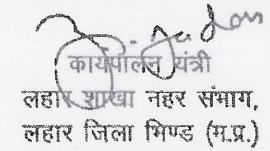 कार्यपालन यंत्री
लहार शाखा नहर संभाग,
लहार जिला भिण्ड (म.प्र.)